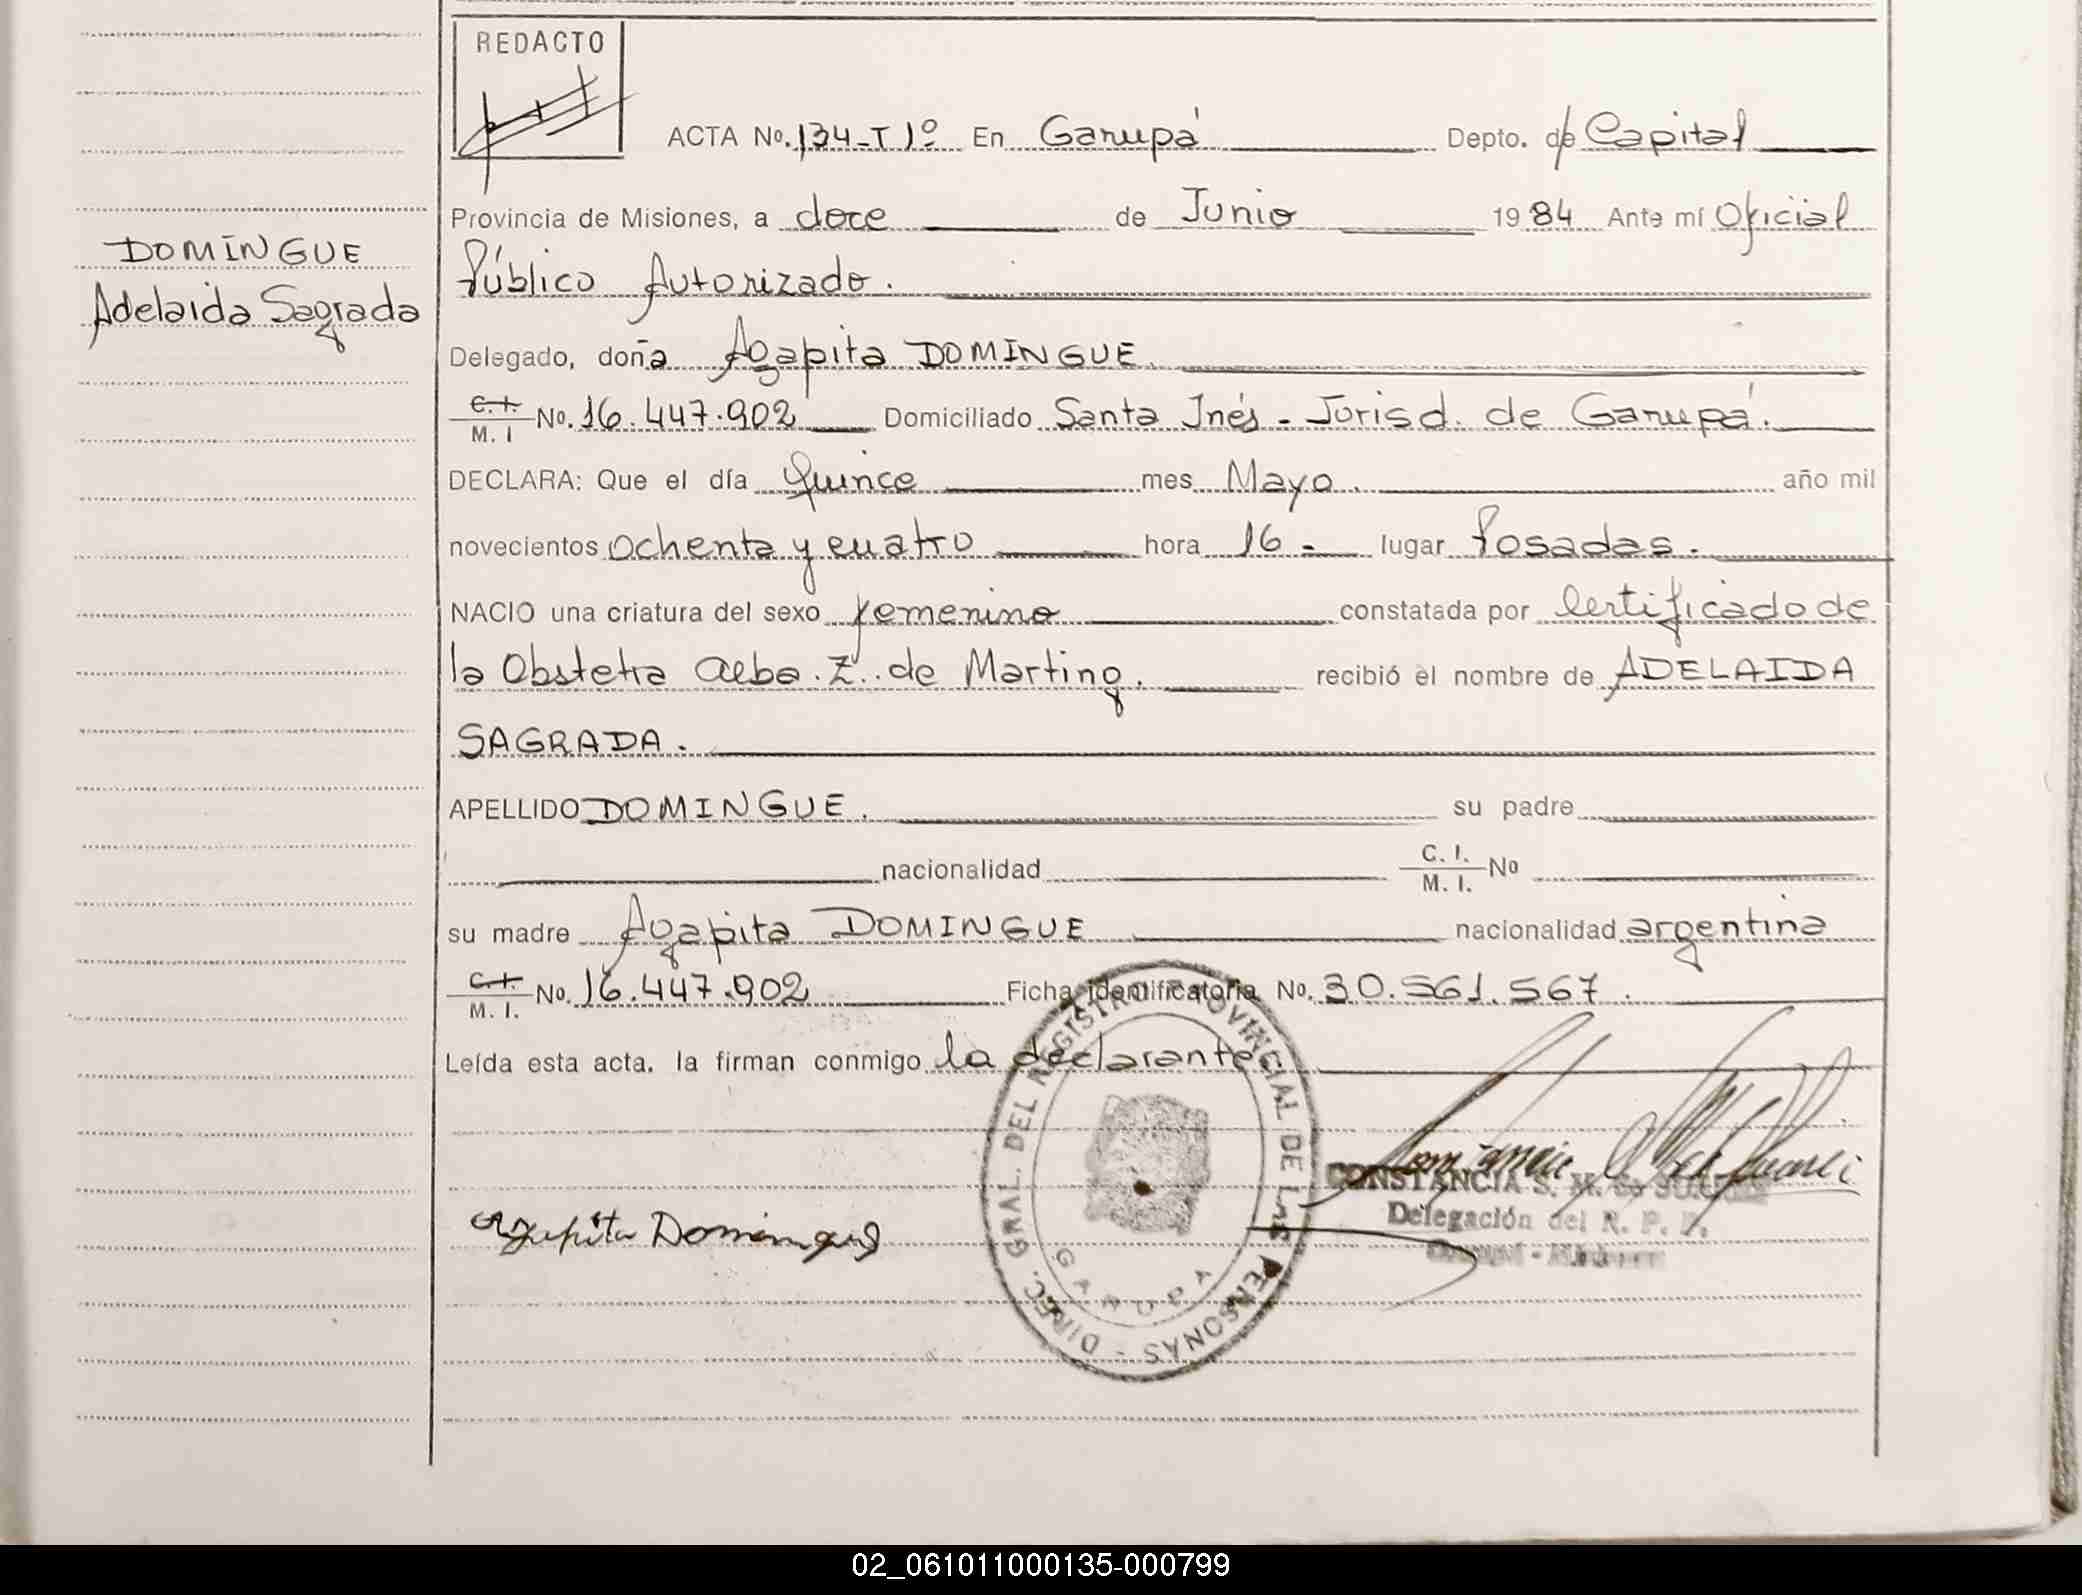 REDACTO
ACTA No. 134-T 1º En Garupá Depto. de Capital
Provincia de Misiones, a doce de Junio 19 84 Ante mí Oficial
DOMINGUE
Público Autorizado.
Adelaida Sagrada
Delegado, doña Agapita DOMINGUE.
C.I. M. I No. 16.447.902 Domiciliado Santa Inés - Jurisd. de Garupá.
DECLARA: Que el día Quince mes Mayo. año mil
novecientos ochenta y cuatro hora 16 - lugar Posadas.
NACIO una criatura del sexo femenino constatada por Certificado de
la Obstetra Alba. Z. de Martinq. recibió el nombre de ADELAIDA
SAGRADA.
APELLIDO DOMINGUE. su padre
nacionalidad C. I. M. I. No
su madre Agapita DOMINGUE nacionalidad argentina
C.I. M. I. No. 16.447.902 Ficha identificatoria No. 30.561.567.
Leída esta acta, la firman conmigo la declarante.
DIREC. GRAL. DEL REGISTRO PROVINCIAL DE LAS PERSONAS - GARUPA
CONSTANCIA S. M. de
Delegación del R. P. P.
Agapita Domingue
02_061011000135-000799